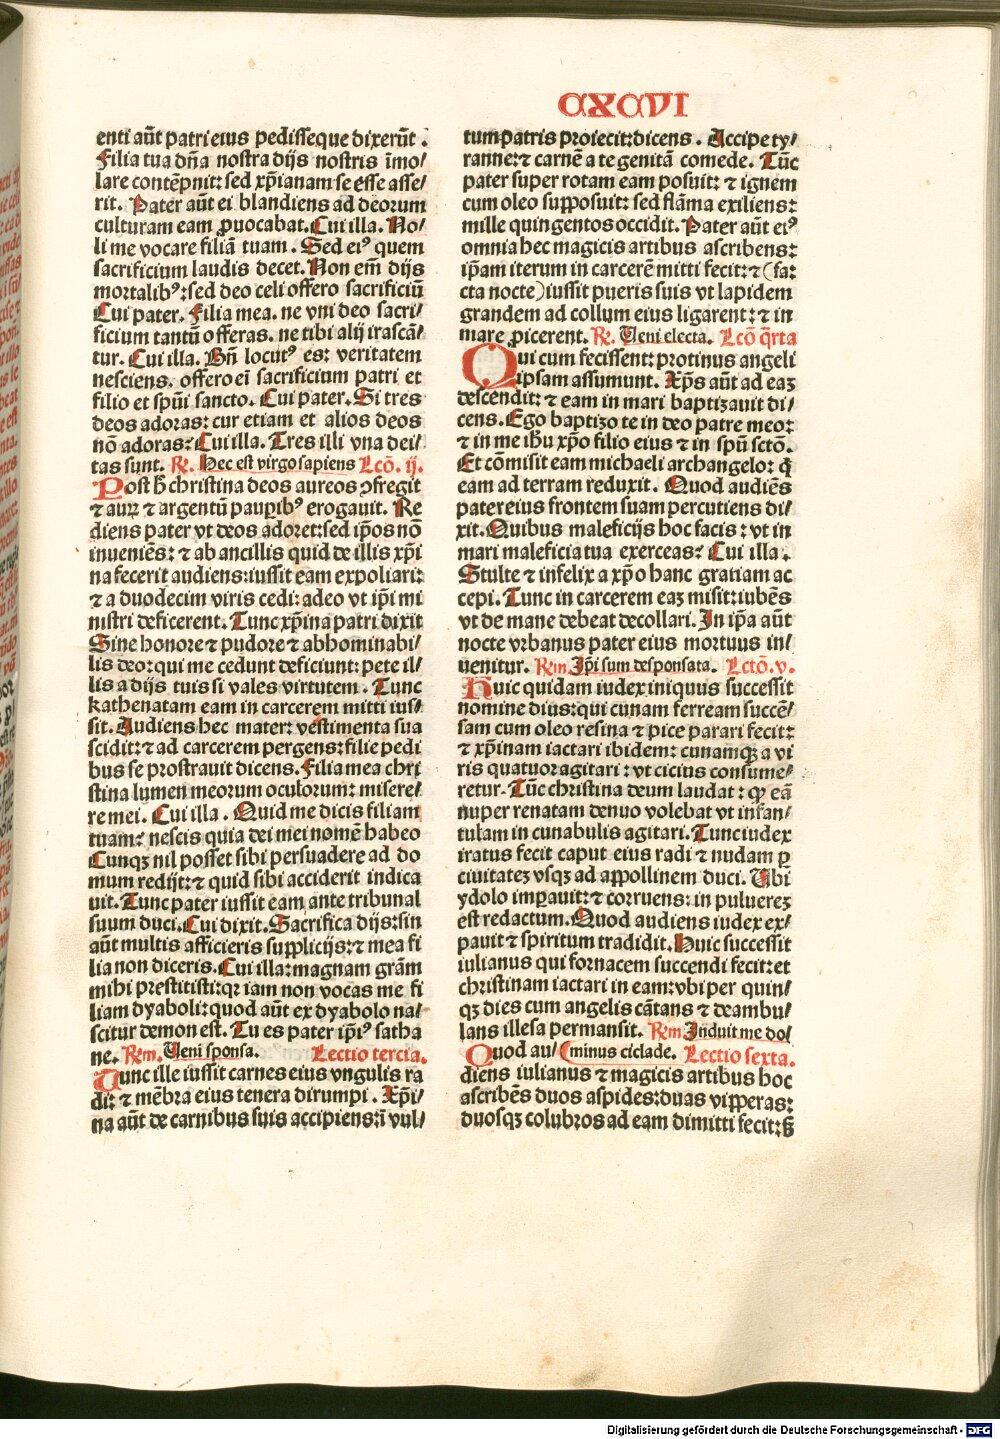 CXCVI
enti aūt patri eius pedisseque dixerūt .
Filia tua dn̄a nostra dijs nostris īmo/
lare contēpnit: sed xp̄ianam se esse asse/
rit. Pater aūt ei blandiens ad deorum
culturam eam ꝓuocabat. Cui illa. No/
li me vocare filiā tuam . Sed ei⁹ quem
sacrificium laudis decet. Non em̄ dijs
mortalib⁹: sed deo celi offero sacrificiū
Cui pater. Filia mea. ne vni deo sacri/
ficium tantū offeras. ne tibi alij irascā/
tur. Cui illa. Bn̄ locut⁹ es: veritatem
nesciens. offero ei sacrificium patri et
filio et spūi sancto. Cui pater. Si tres
deos adoras: cur etiam et alios deos
nō adoras? Cui illa. Tres illi vna dei/
tas sunt. R̷. Hec est virgo sapiens Lcō. ij.
Post h̄ christina deos aureos ↄfregit
⁊ auꝝ ⁊ argentū pauꝑib⁹ erogauit. Re
diens pater vt deos adoret: sed ip̄os nō
inueniēs: ⁊ ab ancillis quid de illis xp̄i
na fecerit audiens: iussit eam expoliari:
⁊ a duodecim viris cedi: adeo vt ip̄i mi
nistri deficerent. Tunc xp̄ina patri dixit
Sine honore ⁊ pudore ⁊ abhominabi/
lis deo: qui me cedunt deficiunt: pete il/
lis a dijs tuis si vales virtutem . Tunc
kathenatam eam in carcerem mitti ius/
sit. Audiens hec mater: vestimenta sua
scidit: ⁊ ad carcerem pergens: filie pedi
bus se prostrauit dicens. Filia mea chri
stina lumen meorum oculorum: misere/
re mei. Cui illa . Quid me dicis filiam
tuam? nescis quia dei mei nomē habeo
Cunqꝫ nil posset sibi persuadere ad do
mum redijt: ⁊ quid sibi acciderit indica
uit. Tunc pater iussit eam ante tribunal
suum duci. Cui dixit. Sacrifica dijs: sin
aūt multis afficieris supplicijs: ⁊ mea fi
lia non diceris. Cui illa: magnam grām
mihi prestitisti: qꝛ iam non vocas me fi
liam dyaboli: quod aūt ex dyabolo na/
scitur demon est. Tu es pater ip̄i⁹ satha
ne. R̷m. Ueni sponsa. Lectio tercia.
Tunc ille iussit carnes eius vngulis ra
di: ⁊ mēbra eius tenera dirumpi . Xp̄i/
na aūt de carnibus suis accipiens: ī vul/
tum patris proiecit: dicens . Accipe ty/
ranne: ⁊ carnē a te genitā comede. Tūc
pater super rotam eam posuit: ⁊ ignem
cum oleo supposuit: sed flāma exiliens:
mille quingentos occidit. Pater aūt ei⁹
omnia hec magicis artibus ascribens:
ip̄am iterum in carcerē mitti fecit: ⁊ (fa:
cta nocte) iussit pueris suis vt lapidem
grandem ad collum eius ligarent: ⁊ in
mare ꝓicerent. R̷. Ueni electa. Lcō q̄rta
Qui cum fecissent: protinus angeli
ipsam assumunt. Xp̄s aūt ad eaꝫ
descendit: ⁊ eam in mari baptizauit di/
cens. Ego baptizo te in deo patre meo:
⁊ in me ihū xp̄o filio eius ⁊ in spū sctō.
Et cōmisit eam michaeli archangelo: q̄
eam ad terram reduxit. Quod audiēs
pater eius frontem suam percutiens di/
xit. Quibus maleficijs hoc facis: vt in
mari maleficia tua exerceas? Cui illa .
Stulte ⁊ infelix a xp̄o hanc gratiam ac
cepi. Tunc in carcerem eaꝫ misit: iubēs
vt de mane debeat decollari. In ip̄a aūt
nocte vrbanus pater eius mortuus in/
uenitur. R̷m. Ip̄i sum desponsata. Lctō. v.
Huic quidam iudex iniquus successit
nomine dius: qui cunam ferream succē/
sam cum oleo resina ⁊ pice parari fecit:
⁊ xp̄inam iactari ibidem: cunamqꝫ a vi
ris quatuor agitari : vt cicius consume/
retur. Tūc christina deum laudat : ꝙ eā
nuper renatam denuo volebat vt infan/
tulam in cunabulis agitari. Tunc iudex
iratus fecit caput eius radi ⁊ nudam ꝑ
ciuitateꝫ vsqꝫ ad appollinem duci. Ubi
ydolo imꝑauit: ⁊ corruens: in puluereꝫ
est redactum. Quod audiens iudex ex/
pauit ⁊ spiritum tradidit. Huic successit
iulianus qui fornacem succendi fecit: et
christinam iactari in eam: vbi per quin/
qꝫ dies cum angelis cātans ⁊ deambu/
lans illesa permansit. R̷m. Induit me do/
Quod au/ (minus ciclade. Lectio sexta.
diens iulianus ⁊ magicis artibus hoc
ascribēs duos aspides: duas vipperas:
duosqꝫ colubros ad eam dimitti fecit: s̄
Digitalisierung gefördert durch die Deutsche Forschungsgemeinschaft - DFG